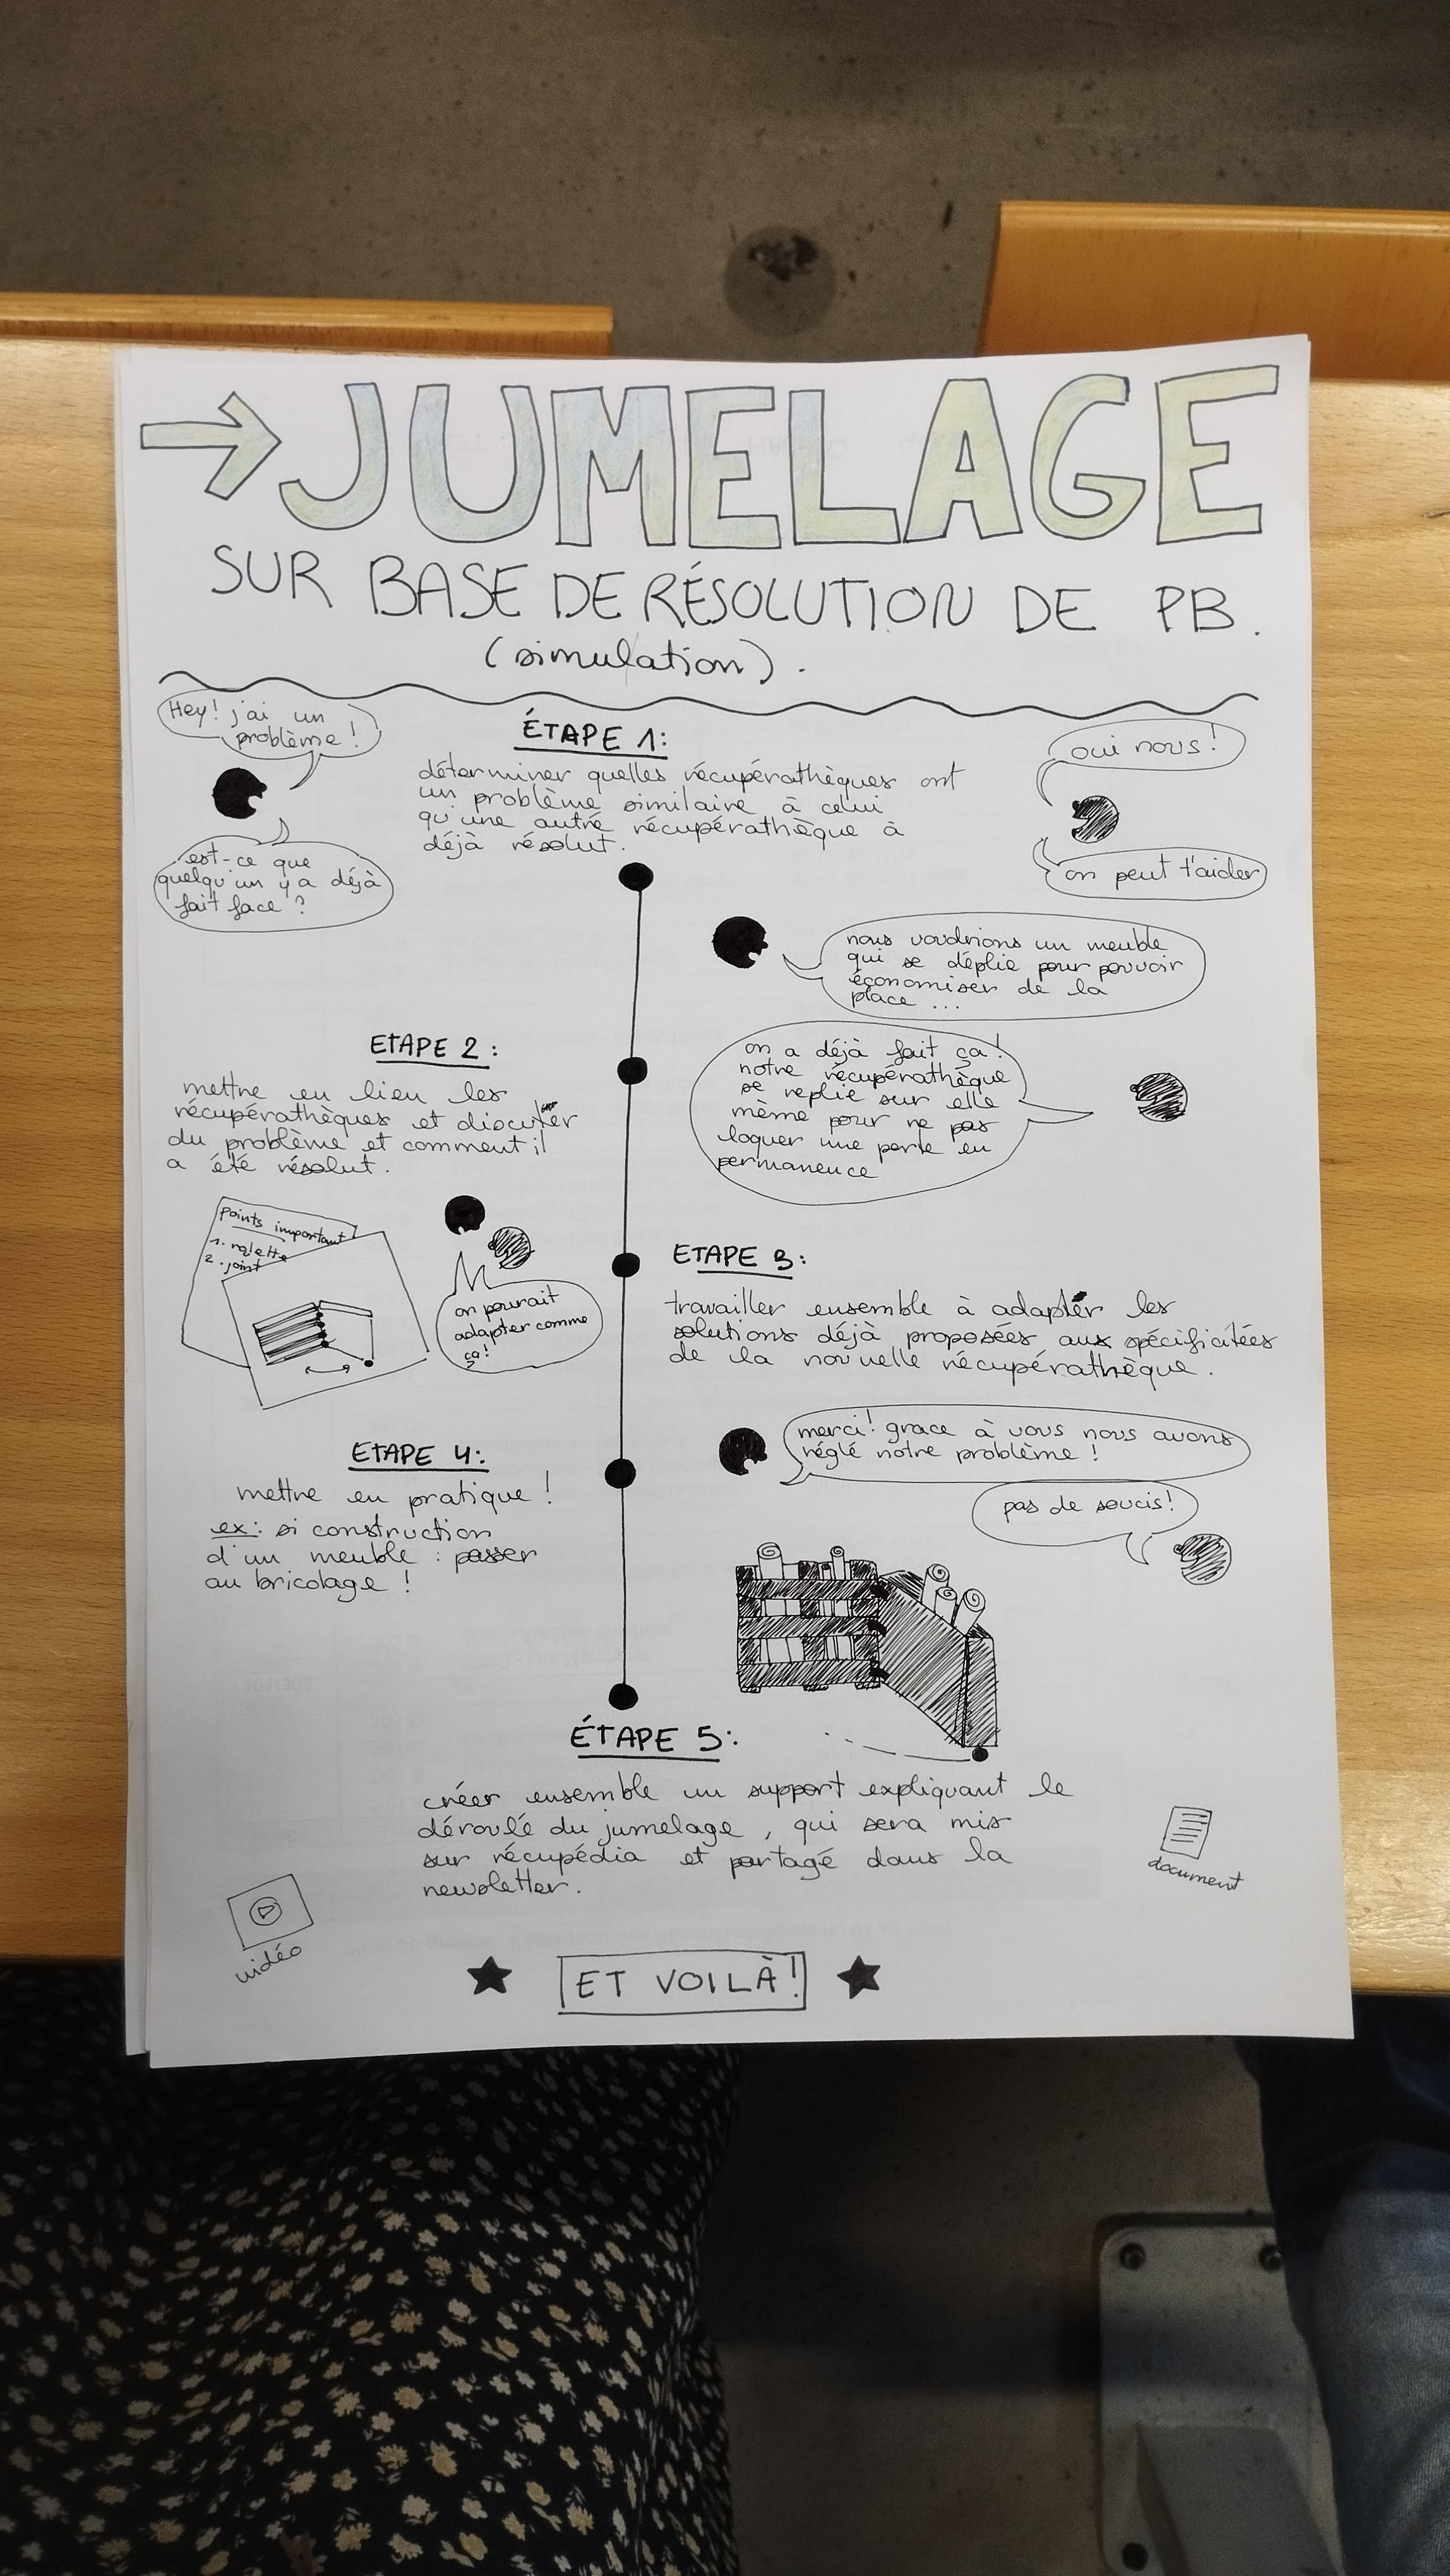 → JUMELAGE
SUR BASE DE RÉSOLUTION DE PB.
(simulation).
Hey! j'ai un
problème!
est-ce que
quelqu'un y a déjà
fait face ?
ÉTAPE 1:
déterminer quelles récupérathèques ont
un problème similaire à celui
qu'une autre récupérathèque à
déjà résolut.
oui nous!
on peut t'aider
nous voudrions un meuble
qui se déplie pour pouvoir
économiser de la
place ...
ETAPE 2 :
mettre en lien les
récupérathèques et discuter
du problème et comment il
a été résolut.
on a déjà fait ça!
notre récupérathèque
se replie sur elle
même pour ne pas
loquer une porte en
permanence
Points important
1. palette
2. joint
on pourait
adapter comme
ça!
ETAPE 3:
travailler ensemble à adapter les
solutions déjà proposées aux spécificitées
de la nouvelle récupérathèque.
ETAPE 4:
mettre en pratique !
ex: si construction
d'un meuble : passer
au bricolage !
merci! grace à vous nous avons
réglé notre problème !
pas de soucis!
ÉTAPE 5:
créer ensemble un support expliquant le
déroulé du jumelage, qui sera mis
sur récupédia et partagé dans la
newsletter.
vidéo
document
ET VOILÀ!